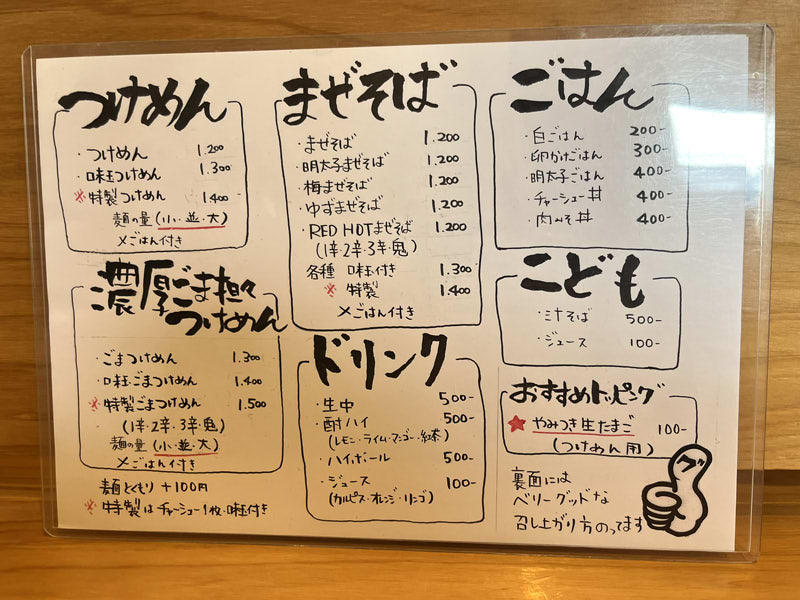 つけめん
・つけめん 1.200
・味玉つけめん 1.300
※特製つけめん 1.400
麺の量(小・並・大)
〆ごはん付き
濃厚ごま担々
つけめん
・ごまつけめん 1.300
・味玉ごまつけめん 1.400
※特製ごまつけめん 1.500
(1辛・2辛・3辛・鬼)
麺の量(小・並・大)
〆ごはん付き
麺大もり +100円
※特製はチャーシュー1枚・味玉付き
まぜそば
・まぜそば 1.200
・明太子まぜそば 1.200
・梅まぜそば 1.200
・ゆずまぜそば 1.200
・RED HOTまぜそば 1.200
(1辛・2辛・3辛・鬼)
各種 味玉付き 1.300
※特製 1.400
〆ごはん付き
ドリンク
・生中 500-
・酎ハイ 500-
(レモン・ライム・マンゴー・紅茶)
・ハイボール 500-
・ジュース 100-
(カルピス・オレンジ・リンゴ)
ごはん
・白ごはん 200-
・卵かけごはん 300-
・明太子ごはん 400-
・チャーシュー丼 400-
・肉みそ丼 400-
こども
・ミニそば 500-
・ジュース 100-
おすすめトッピング
★やみつき生たまご 100-
(つけめん用)
裏面には
ベリーグッドな
召し上がり方のってます
グ